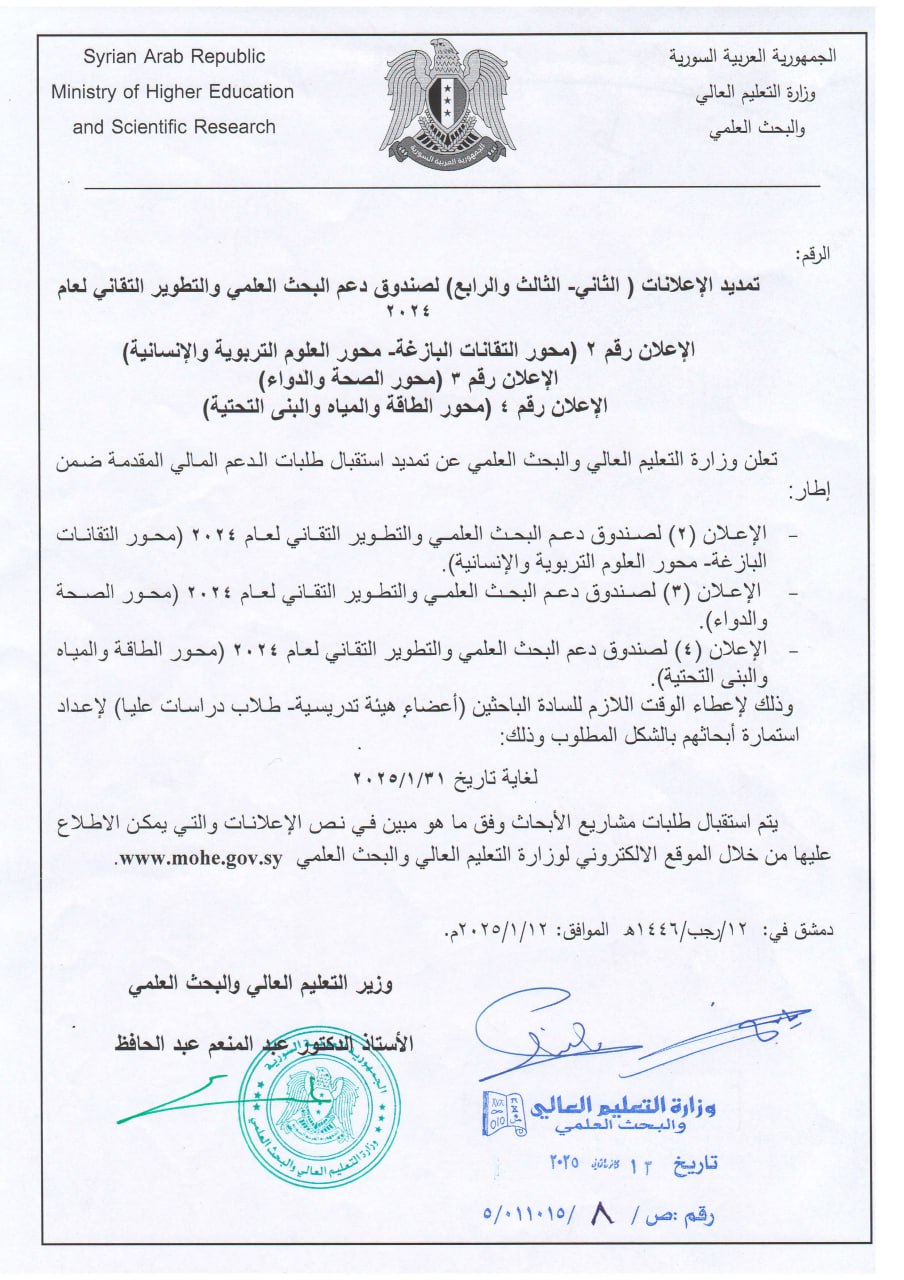 Syrian Arab Republic
Ministry of Higher Education
and Scientific Research
الجمهورية العربية السورية
وزارة التعليم العالي
والبحث العلمي
الجمهورية العربية السورية
الرقم:
تمديد الإعلانات ( الثاني- الثالث والرابع) لصندوق دعم البحث العلمي والتطوير التقاني لعام
٢٠٢٤
الإعلان رقم ٢ (محور التقانات البازغة- محور العلوم التربوية والإنسانية)
الإعلان رقم ٣ (محور الصحة والدواء)
الإعلان رقم ٤ (محور الطاقة والمياه والبنى التحتية)
تعلن وزارة التعليم العالي والبحث العلمي عن تمديد استقبال طلبات الدعم المالي المقدمة ضمن
إطار:
- الإعلان (٢) لصندوق دعم البحث العلمي والتطوير التقاني لعام ٢٠٢٤ (محور التقانات
البازغة- محور العلوم التربوية والإنسانية).
- الإعلان (٣) لصندوق دعم البحث العلمي والتطوير التقاني لعام ٢٠٢٤ (محور الصحة
والدواء).
- الإعلان (٤) لصندوق دعم البحث العلمي والتطوير التقاني لعام ٢٠٢٤ (محور الطاقة والمياه
والبنى التحتية).
وذلك لإعطاء الوقت اللازم للسادة الباحثين (أعضاء هيئة تدريسية- طلاب دراسات عليا) لإعداد
استمارة أبحاثهم بالشكل المطلوب وذلك:
لغاية تاريخ ٢٠٢٥/١/٣١
يتم استقبال طلبات مشاريع الأبحاث وفق ما هو مبين في نص الإعلانات والتي يمكن الاطلاع
عليها من خلال الموقع الالكتروني لوزارة التعليم العالي والبحث العلمي www.mohe.gov.sy.
دمشق في: ١٢/رجب/١٤٤٦هـ الموافق: ٢٠٢٥/١/١٢م.
وزير التعليم العالي والبحث العلمي
الأستاذ الدكتور عبد المنعم عبد الحافظ
الجمهورية العربية السورية
وزارة التعليم العالي والبحث العلمي
وزارة التعليم العالي
والبحث العلمي
تاريخ ١٢ ٢٠٢٥
رقم :ص / ٨ /٥/٠١١٠١٥